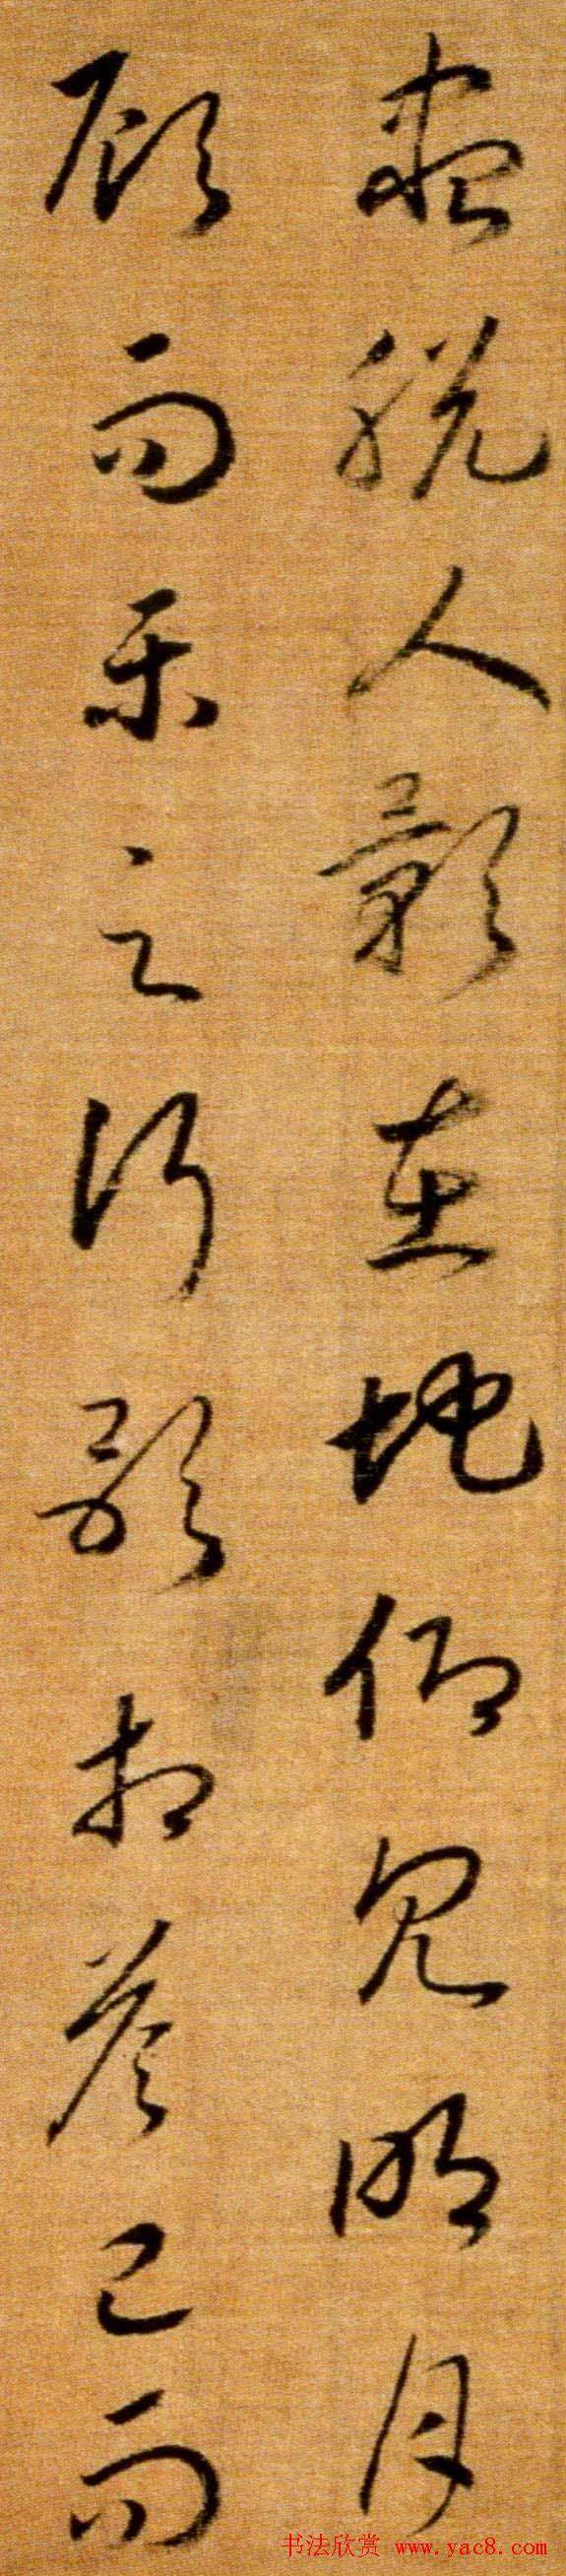 盡脫人影在地仰見明月
顧而樂之行歌相答已而
书法欣赏 www.yac8.com